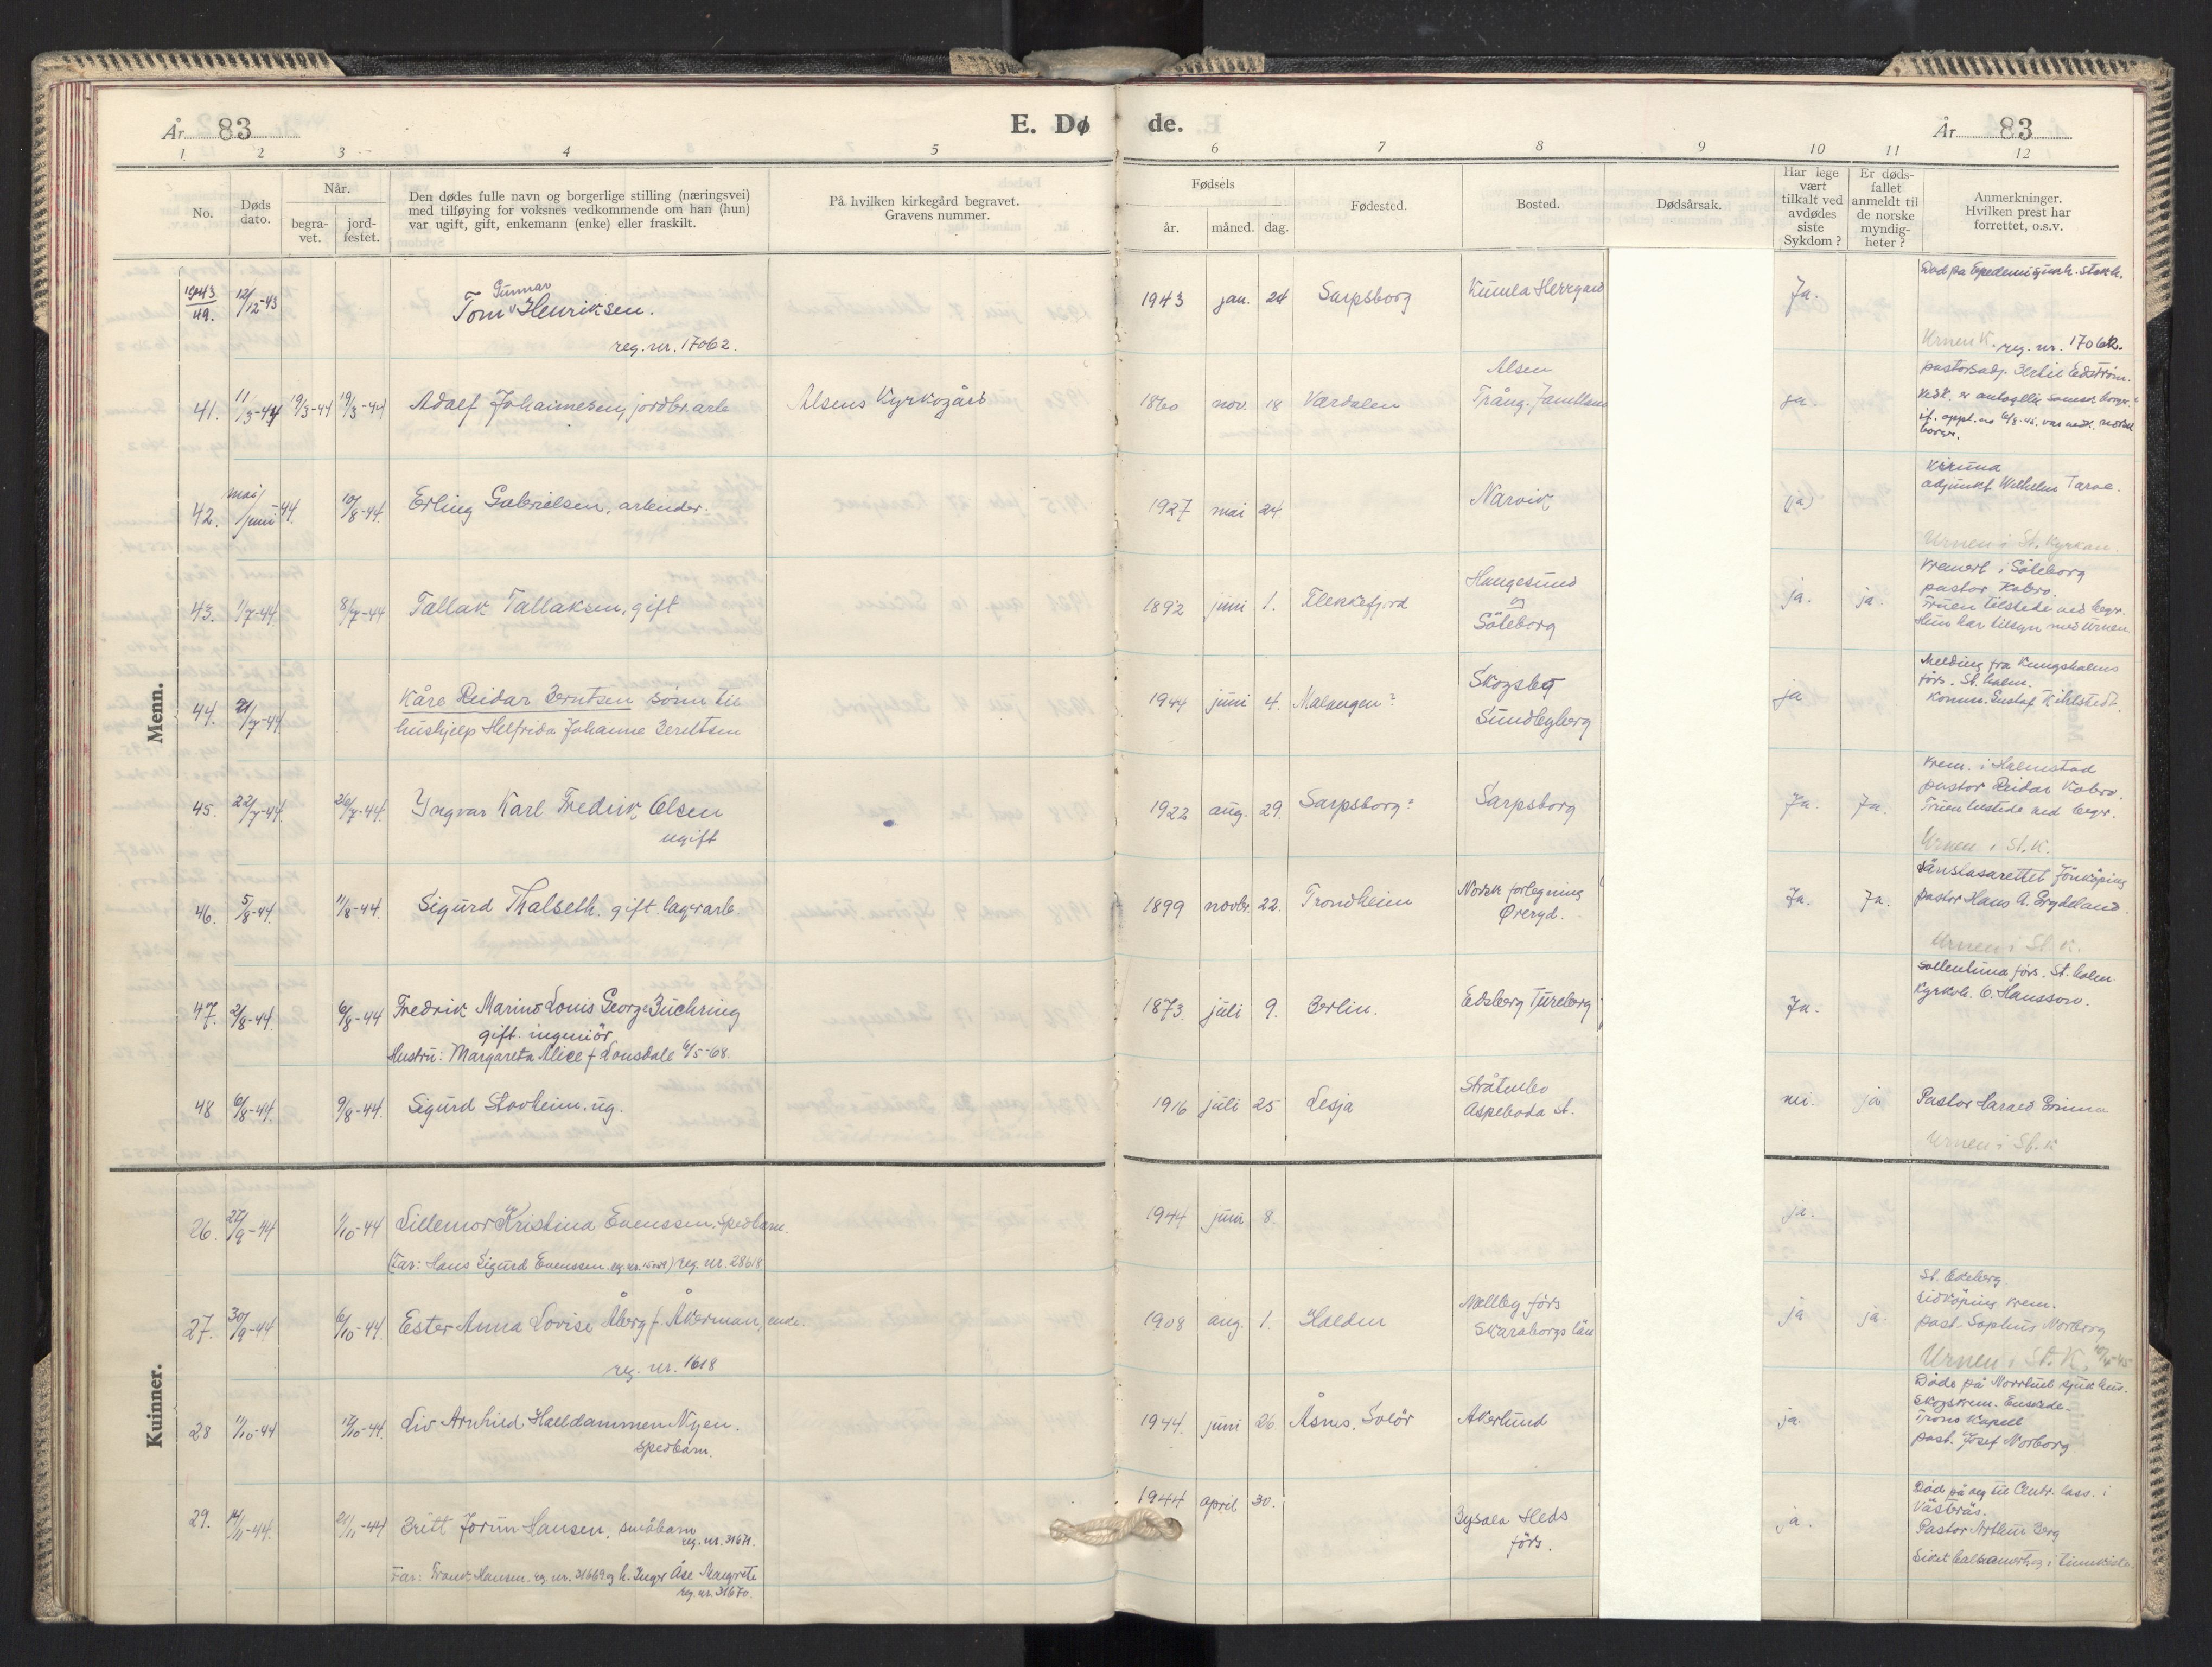 År 83
E. Dø
de.
År 83
1 2 3 4 5
6 7 8 9 10 11 12
No.
Døds dato.
Når.
begravet.
jordfestet.
Den dødes fulle navn og borgerlige stilling (næringsvei)
med tilføying for voksnes vedkommende om han (hun)
var ugift, gift, enkemann (enke) eller fraskilt.
På hvilken kirkegård begravet.
Gravens nummer.
Fødsels
år. måned. dag.
Fødested.
Bosted.
Dødsårsak.
Har lege
vært
tilkalt ved
avdødes
siste
Sykdom?
Er døds-
fallet
anmeldt til
de norske
myndig-
heter?
Anmerkninger.
Hvilken prest har
forrettet, o.s.v.
Menn.
1943
49. 12/12-43
Gunnar
Tom Henriksen.
reg. nr. 17062.
1943 jan. 24 Sarpsborg Kumla Herrgård Ja.
Urnen K. reg. nr. 17062.
41. 11/3-44 19/3-44 19/3-44 Adolf Johannesen, jordbr.arb. Alsens Kyrkogård
1860 nov. 18 Værdalen
Alsen
Trång.
ja.
pastorsadj. Edström.
42. mai/juni-44. 10/8-44. Erling Gabrielsen, arbeider.
1927 mai 24. Narvik (ja)
Kiruna
adjunkt Wilhelm Tarve.
Urnen i St. Kyrkan.
43. 1/7-44. 8/7-44 Tallak Tallaksen, gift
1892 juni 1. Flekkefjord
Haugesund
og
Göteborg
ja. ja.
Kremert i Göteborg
pastor Kobro.
Fruen tilstede ved begr.
Hun har tilsyn med urnen
44. 21/7-44 Kåre Reidar Berntsen sønn til
hushjelp Helfrida Johanne Berntsen
1944 juni 4. Malangen?
Sundbyberg
ja
Melding fra Kungsholms
förs. St. holm.
Komm. Gustaf Kihlstedt.
45. 22/7-44. 26/7-44. Yngvar Karl Fredrik Olsen
ugift
1922 aug. 29. Sarpsborg? Sarpsborg Ja. Ja.
Krem. i Halmstad
pastor Reidar Kobro.
Fruen tilstede ved begr.
Urnen i St.K.
46. 5/8-44. 11/8-44. Sigurd Thalseth. gift. lagerarb.
1899 novbr. 22. Trondheim
Norsk forlegning
Øreryd.
Ja. Ja.
Länslasarettet Jönköping
pastor Hans A.
Urnen i St. K.
47. 2/8-44. 6/8-44 Fredrik Marino Louis George Buchring
gift. ingeniör
Hustru: Margareta Alice f. Lonsdale 6/5-68.
1873. juli 9. Berlin. Edsberg Tureberg Ja.
Sollentuna förs. St. holm
Kyrkoh. O. Hansson.
48 6/8-44. 9/8-44. Sigurd Stovheim. ug.
1916 juli 25 Lesja
Stråtenbo
Aspeboda st.
nei. ja
Pastor Harald
Urnen i St. K
Kvinner.
26. 27/9-44 1/10-44 Lillemor Kristina Evenssen. spedbarn.
(Far: Hans Sigurd Evenssen. reg. nr.) reg. nr. 28618
1944 juni 8. ja.
27. 30/9-44 6/10-44. Ester Anna Lovise Åberg f. Åkerman, enke.
reg. nr. 1618
1908 aug. 1. Halden
Nællby förs
Skaraborgs län
ja ja.
St. Ekeberg.
Lidköping krem.
past. Sophus Norborg
Urnen i St. K.
28 11/10-44 17/10-44. Liv Arnhild Halldammen Nyen.
spedbarn.
1944. juni 26. Åsnes. Solör Åkerlund ja.
Døde på Norrtull sjukhus.
Skogskrem. Enskede
Trons Kapell
past. Josef Norborg
29. 14/11-44. 21/11-44 Britt Jorun Hansen, småbarn
reg. nr. 31671.
Far: Frank Hansen. reg. nr. 31669 og h. Inger Åse Margrete
reg. nr. 31670.
1944 april 30.
Bysala Heds
förs.
ja.
Død på veg til Centr. lass. i
Västerås.
Pastor Berg